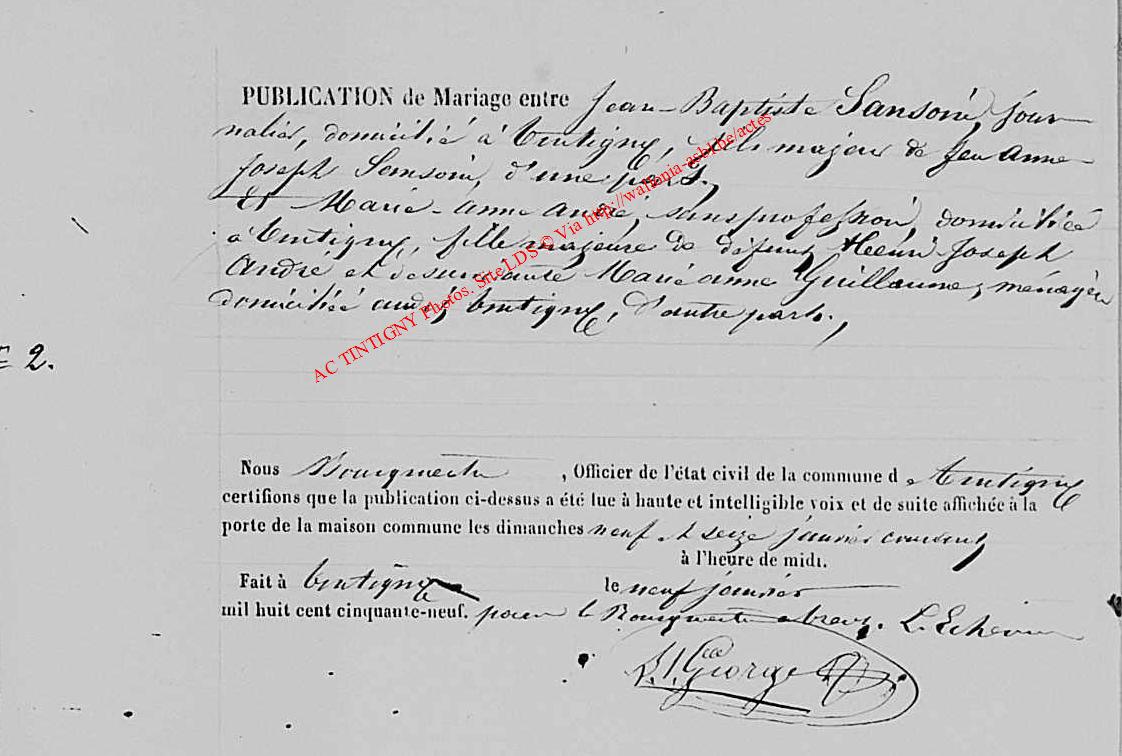 PUBLICATION de Mariage entre Jean-Baptiste Sansoni, jour-
nalier, domicilié à Tintigny, fils majeur de feu Anne-
Joseph Semsoni, d'une part,
Et Marie-Anne André, sans profession, domiciliée
à Tintigny, fille majeure de défunt Henri-Joseph
André et de survivante Marie anne Guillaume, ménagère
domiciliée Tintigny, d'autre part.,
2.
Nous Bourgmestre, Officier de l'état civil de la commune d Tintigny
certifions que la publication ci-dessus a été lue à haute et intelligible voix et de suite affichée à la
porte de la maison commune les dimanches neuf et seize janvier courant
à l'heure de midi.
Fait à Tintigny le neuf janvier
mil huit cent cinquante-neuf. pour le Bourgmestre L'Echevin
George
AC TINTIGNY Photos. Site LDS © Via http://wallonia-asbl.be/actes